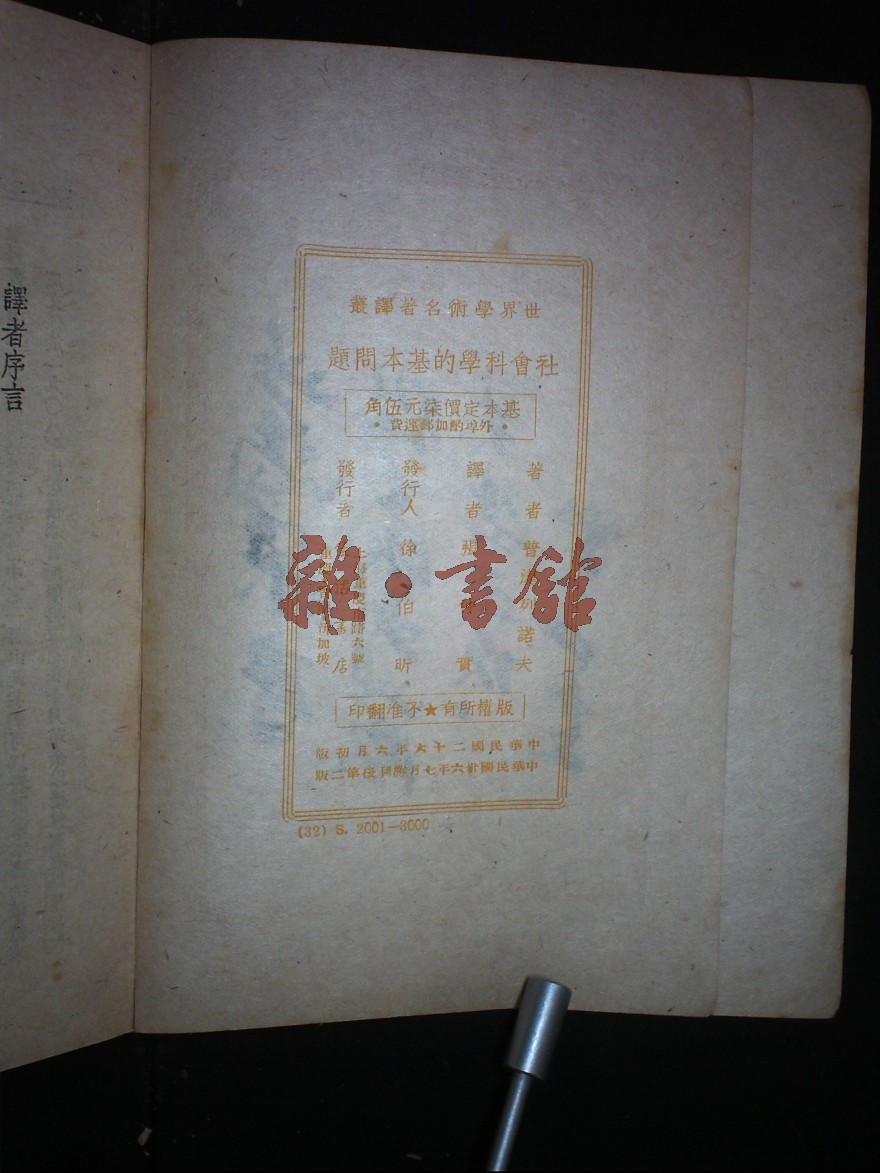 譯者序言
世界學術名著譯叢
社會科學的基本問題
基本定價柒元伍角
•外埠酌加郵運費•
著者 普列諾夫
譯者 張實
發行人 徐伯昕
發行者 書店
路六號
加坡
版權所有★不准翻印
中華民國二十六年六月初版
中華民國卅六年七月勝利後第二版
(32) S. 2001—3000
雜•書館